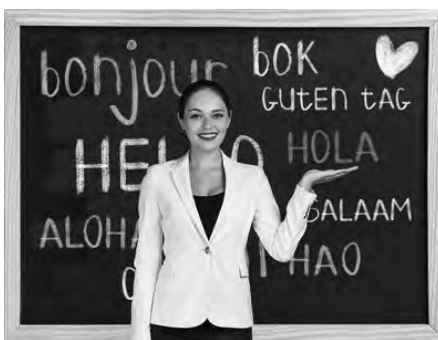 bonjour bok
GUTEN TAG
HELLO HOLA
SALAAM
ALOHA HAO